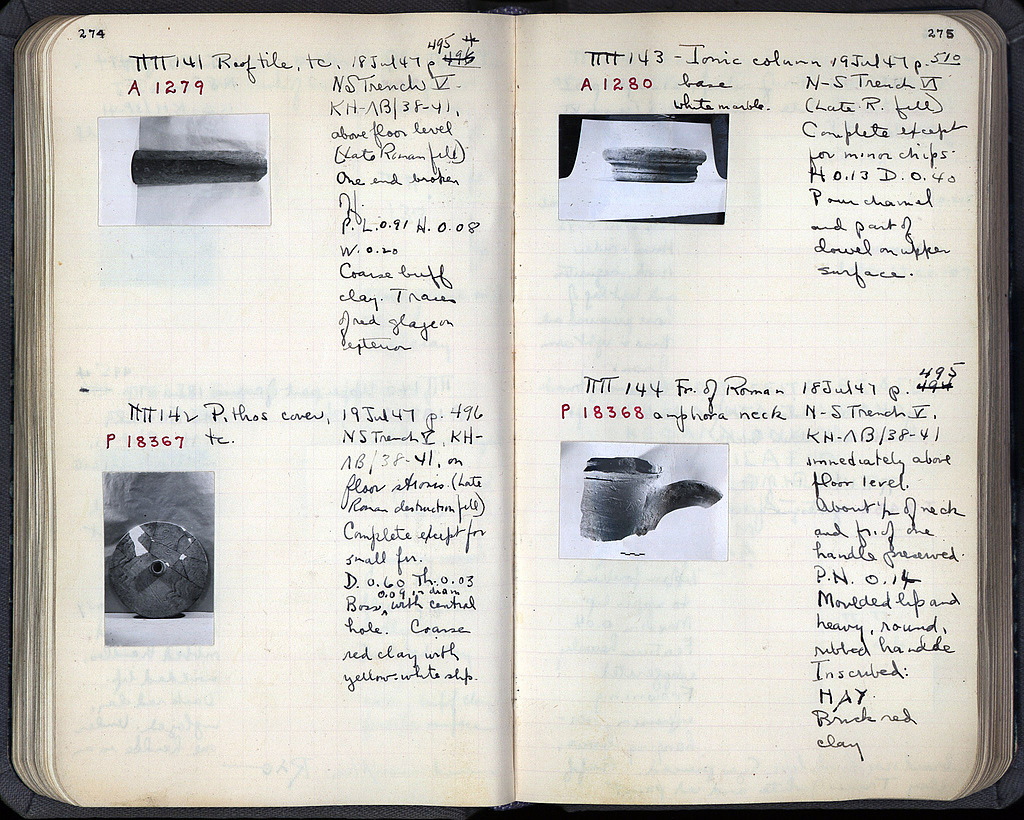 274
495 4
ΠΠ 141 Rooftile, tc. 18 Jul 47 p. 496
A 1279
NS Trench V.
KH-ΛB/38-41,
above floor level
(Late Roman fill)
One end broken
off.
P.L. 0.91 H. 0.08
W. 0.20
Coarse buff
clay. Traces
of red glaze on
exterior
ΠΠ 142 Pithos cover, 19 Jul 47 p. 496
P 18367 tc.
NS Trench V, KH-
ΛB/38-41, on
floor strosis. (Late
Roman destruction fill)
Complete except for
small fr.
D. 0.60 Th. 0.03
0.09 in diam
Boss, with central
hole. Coarse
red clay with
yellow-white slip.
275
ΠΠ 143 - Ionic column 19 Jul 47 p. 510
A 1280 base
white marble.
N-S Trench VI
(Late R. fill)
Complete except
for minor chips.
H 0.13 D. 0.40
Pour channel
and part of
dowel on upper
surface.
495
ΠΠ 144 Fr. of Roman 18 Jul 47 p. 494
P 18368 amphora neck
N-S Trench V,
KH-ΛB/38-41
immediately above
floor level.
About 1/2 of neck
and fr. of one
handle preserved.
P.H. 0.14
Moulded lip and
heavy, round,
ribbed handle
Inscribed:
HAY.
Brick red
clay